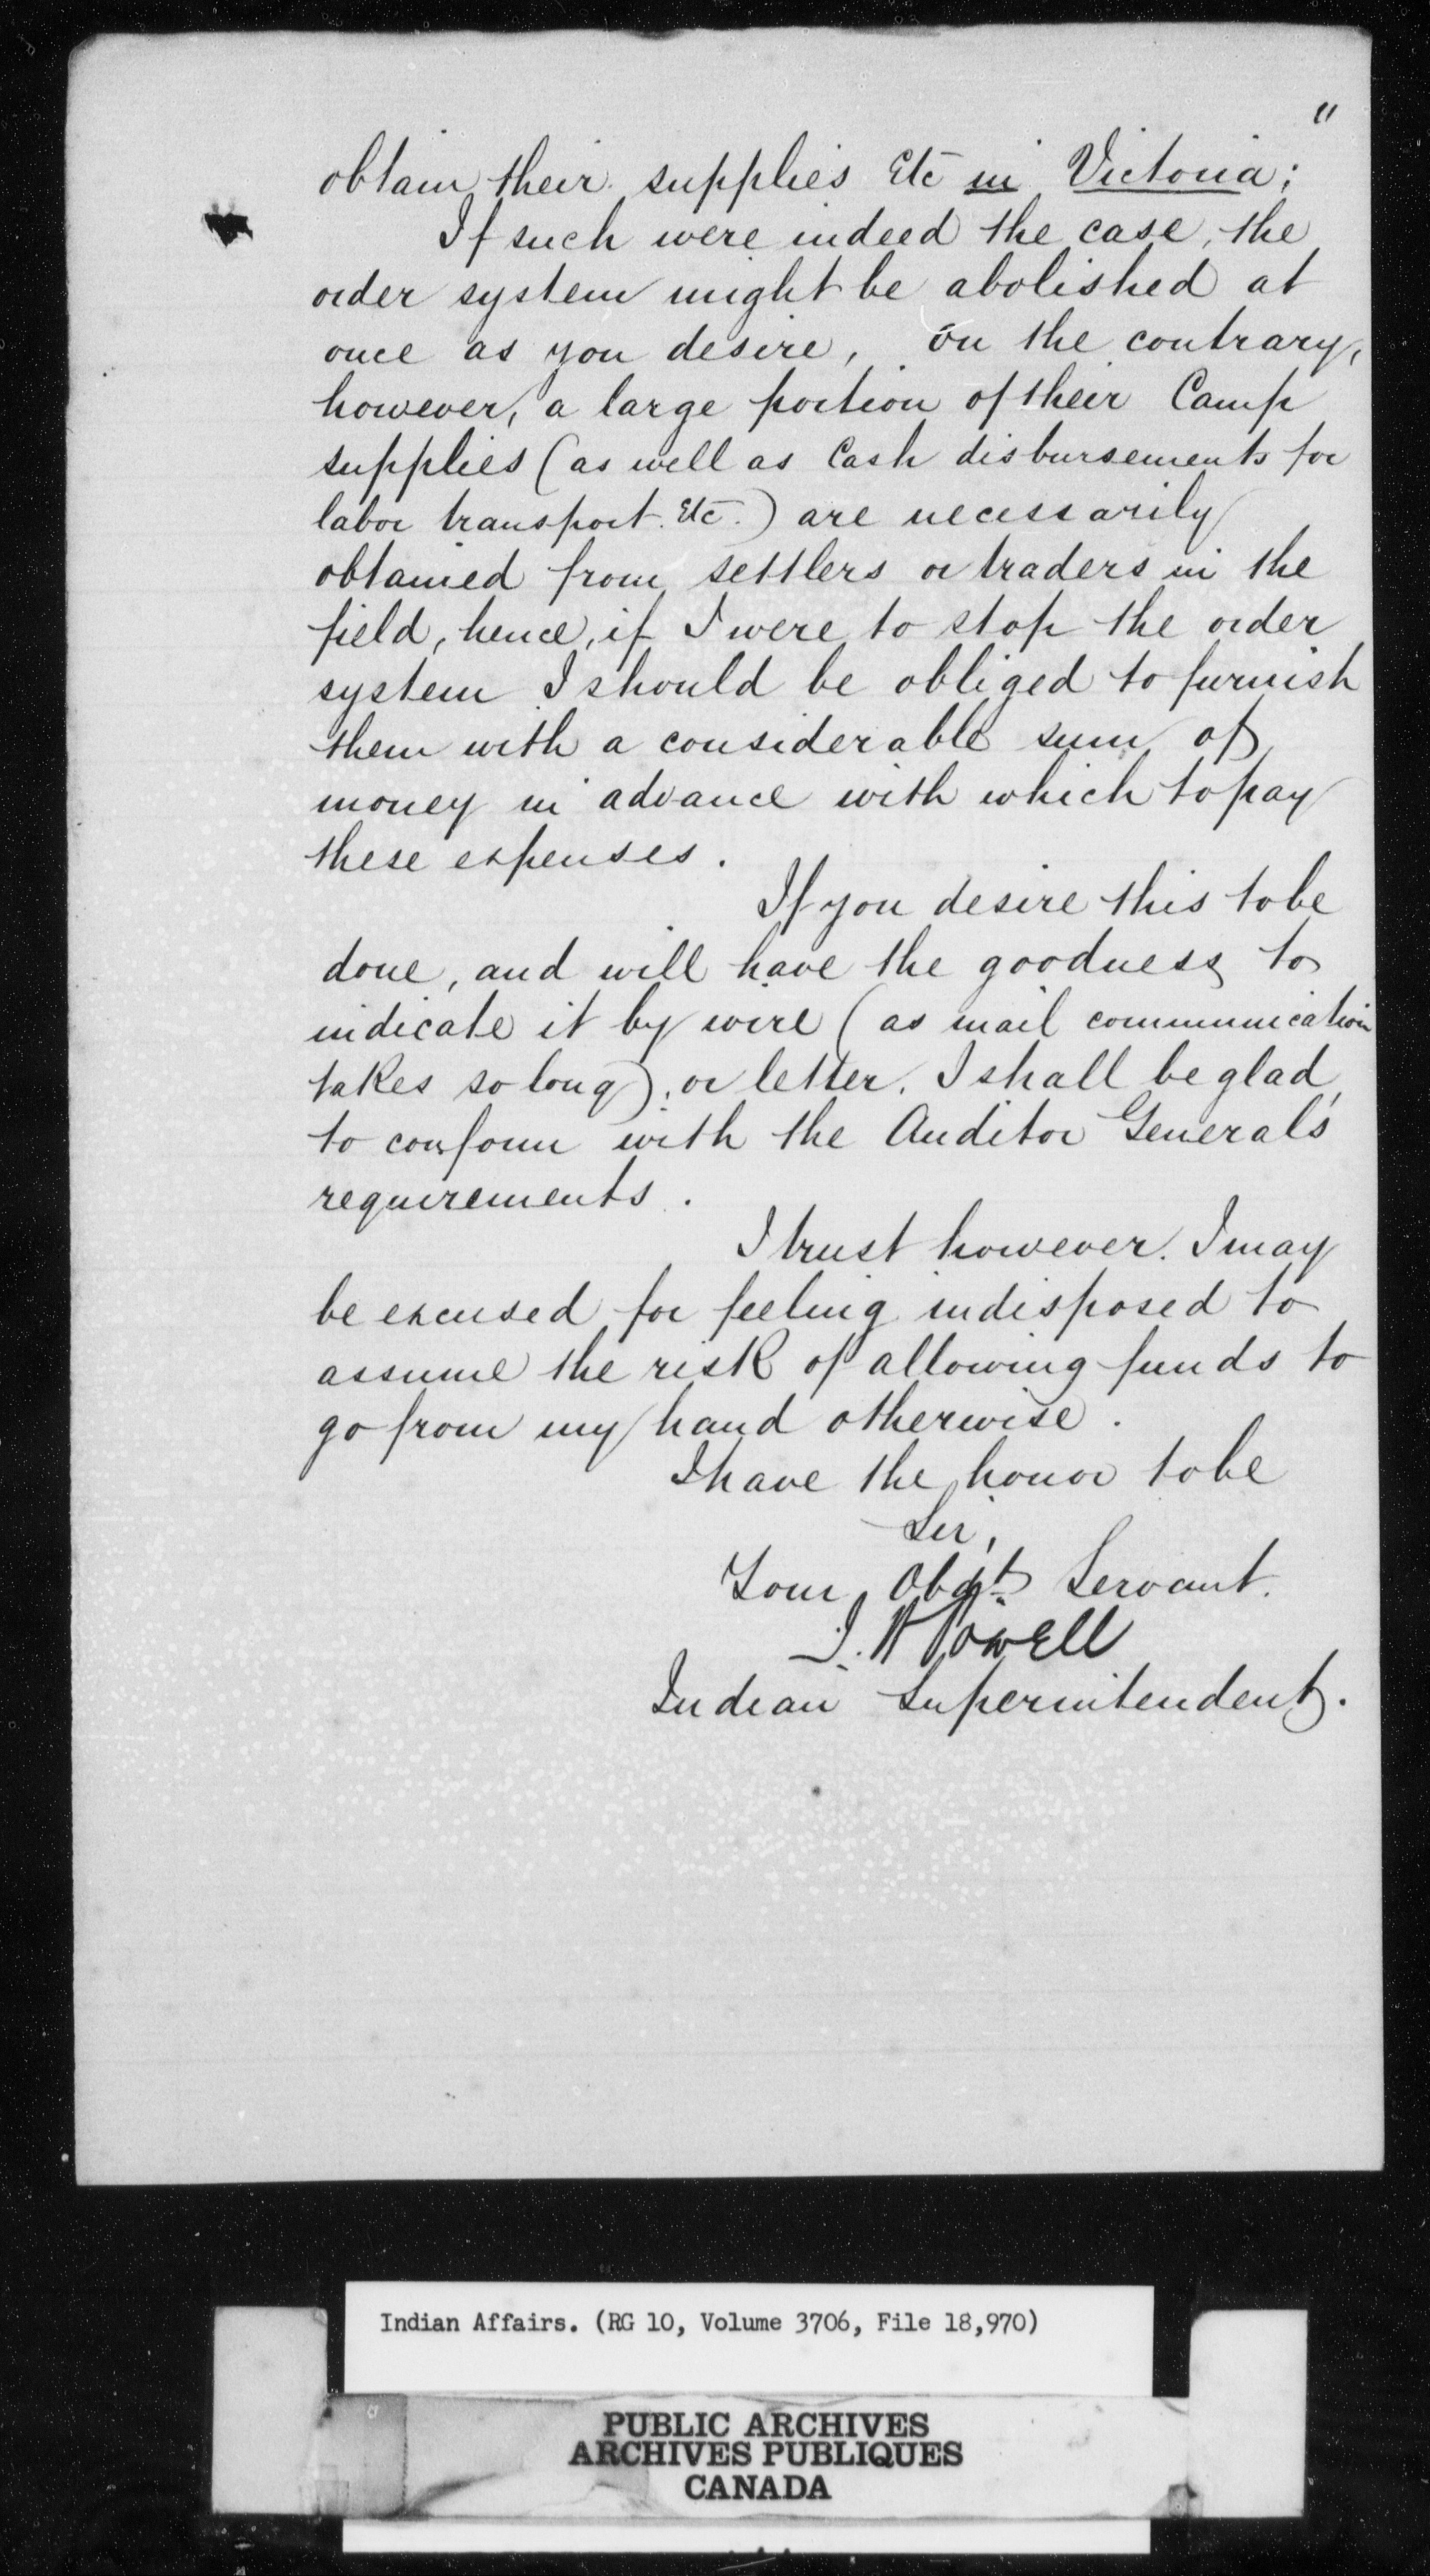 "
obtain their supplies Etc in Victoria;
If such were indeed the case, the
order system might be abolished at
once as you desire, on the contrary,
however, a large portion of their Camp
supplies (as well as Cash disbursements for
labor transport. Etc.) are necessarily
obtained from settlers or traders in the
field, hence, if I were to stop the order
system I should be obliged to furnish
them with a considerable sum of
money in advance with which to pay
these expenses.
If you desire this to be
done, and will have the goodness to
indicate it by wire (as mail communication
takes so long), or letter, I shall be glad
to conform with the Auditor General's
requirements.
I trust however. I may
be excused for feeling indisposed to
assume the risk of allowing funds to
go from my hand otherwise.
I have the honor to be
Sir,
Your Obdt Servant.
I. W Powell
Indian Superintendent.
Indian Affairs. (RG 10, Volume 3706, File 18,970)
PUBLIC ARCHIVES
ARCHIVES PUBLIQUES
CANADA